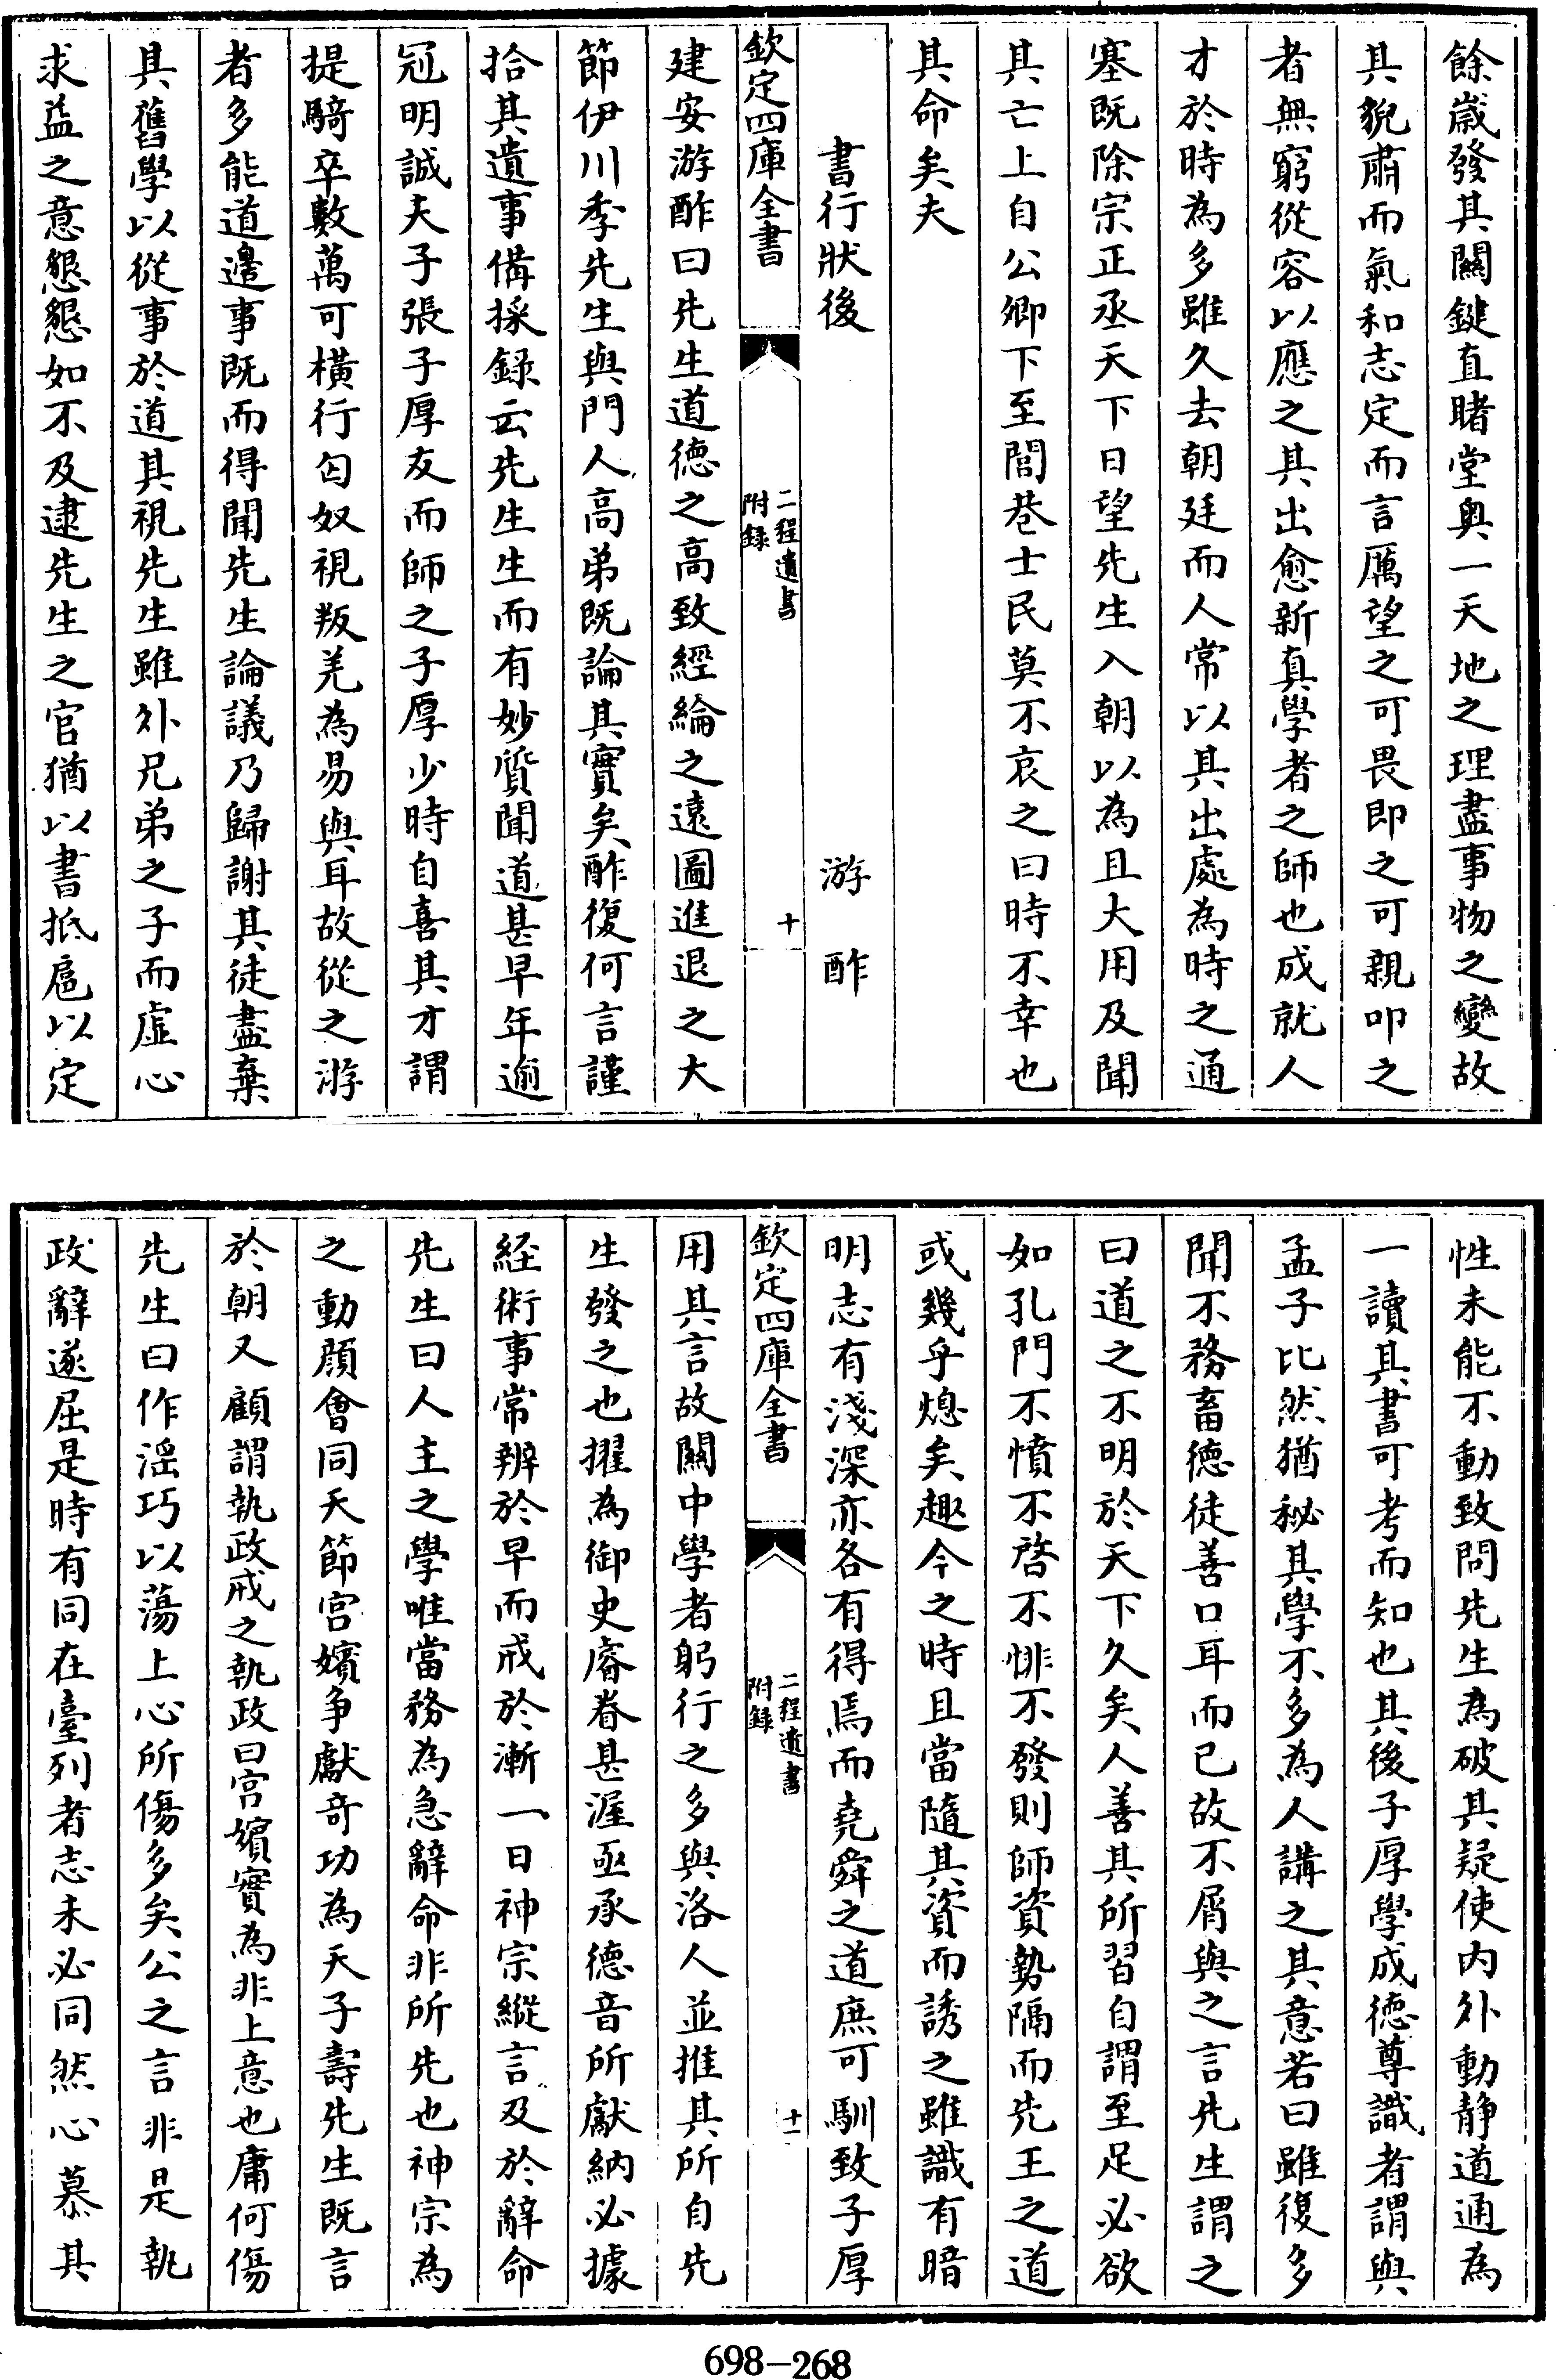 餘歲發其關鍵直睹堂奧一天地之理盡事物之變故
其貌肅而氣和志定而言厲望之可畏即之可親叩之
者無窮從容以應之其出愈新真學者之師也成就人
才於時為多雖久去朝廷而人常以其出處為時之通
塞既除宗正丞天下日望先生入朝以為且大用及聞
其亡上自公卿下至閭巷士民莫不哀之曰時不幸也
其命矣夫
書行狀後 游酢
欽定四庫全書 二程遺書附錄 十
建安游酢曰先生道德之高致經綸之遠圖進退之大
節伊川季先生與門人高弟既論其實矣酢復何言謹
拾其遺事備採錄云先生生而有妙質聞道甚早年逾
冠明誠夫子張子厚友而師之子厚少時自喜其才謂
提騎卒數萬可橫行匈奴視叛羌為易與耳故從之游
者多能道邊事既而得聞先生論議乃歸謝其徒盡棄
其舊學以從事於道其視先生雖外兄弟之子而虛心
求益之意懇懇如不及逮先生之官猶以書抵扈以定
性未能不動致問先生為破其疑使內外動靜道通為
一讀其書可考而知也其後子厚學成德尊識者謂與
孟子比然猶秘其學不多為人講之其意若曰雖復多
聞不務畜德徒善口耳而已故不屑與之言先生謂之
曰道之不明於天下久矣人善其所習自謂至足必欲
如孔門不憤不啓不悱不發則師資勢隔而先王之道
或幾乎熄矣趣今之時且當隨其資而誘之雖識有暗
明志有淺深亦各有得焉而堯舜之道庶可馴致子厚
欽定四庫全書 二程遺書附錄 十一
用其言故關中學者躬行之多與洛人並推其所自先
生發之也擢為御史睿眷甚渥亟承德音所獻納必據
經術事常辨於早而戒於漸一日神宗縱言及於辭命
先生曰人主之學唯當務為急辭命非所先也神宗為
之動顏會同天節宮嬪爭獻奇功為天子壽先生既言
於朝又顧謂執政戒之執政曰宮嬪實為非上意也庸何傷
先生曰作淫巧以蕩上心所傷多矣公之言非是執
政辭遂屈是時有同在臺列者志未必同然心慕其
698-268